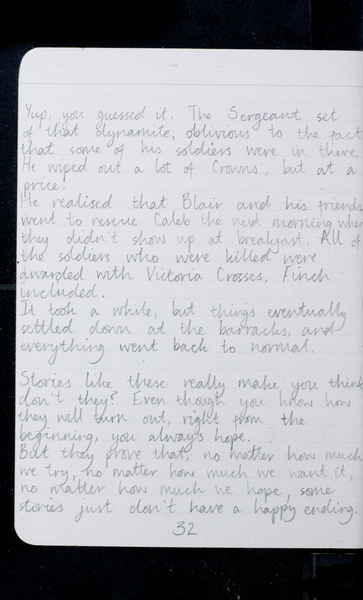 Yup, you guessed it. The Sergeant set
of that dynamite, oblivious to the fact
that some of his soldiers were in there.
He wiped out a lot of 'Crowns', but at a
price!
He realised that Blair and his friends
went to rescue Caleb the next morning when
they didn't show up at breakfast. All of
the soldiers who were killed were
awarded with Victoria Crosses, Finch
included.
It took a while, but things eventually
settled down at the barracks, and
everything went back to normal.
Stories like these really make you think
don't they? Even though you know how
they will turn out, right from the
beginning, you always hope.
But they prove that, no matter how much
we try, no matter how much we want it,
no matter how much we hope, some
stories just don't have a happy ending.
32